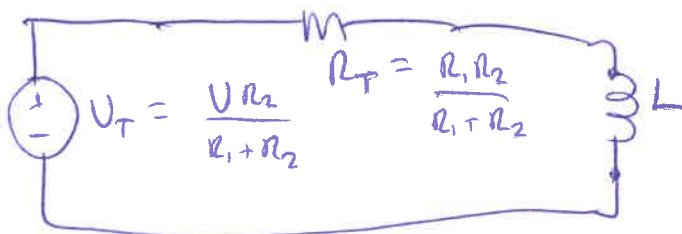 +
-
U_T = U R_2 / (R_1 + R_2)
R_T = R_1 R_2 / (R_1 + R_2)
L